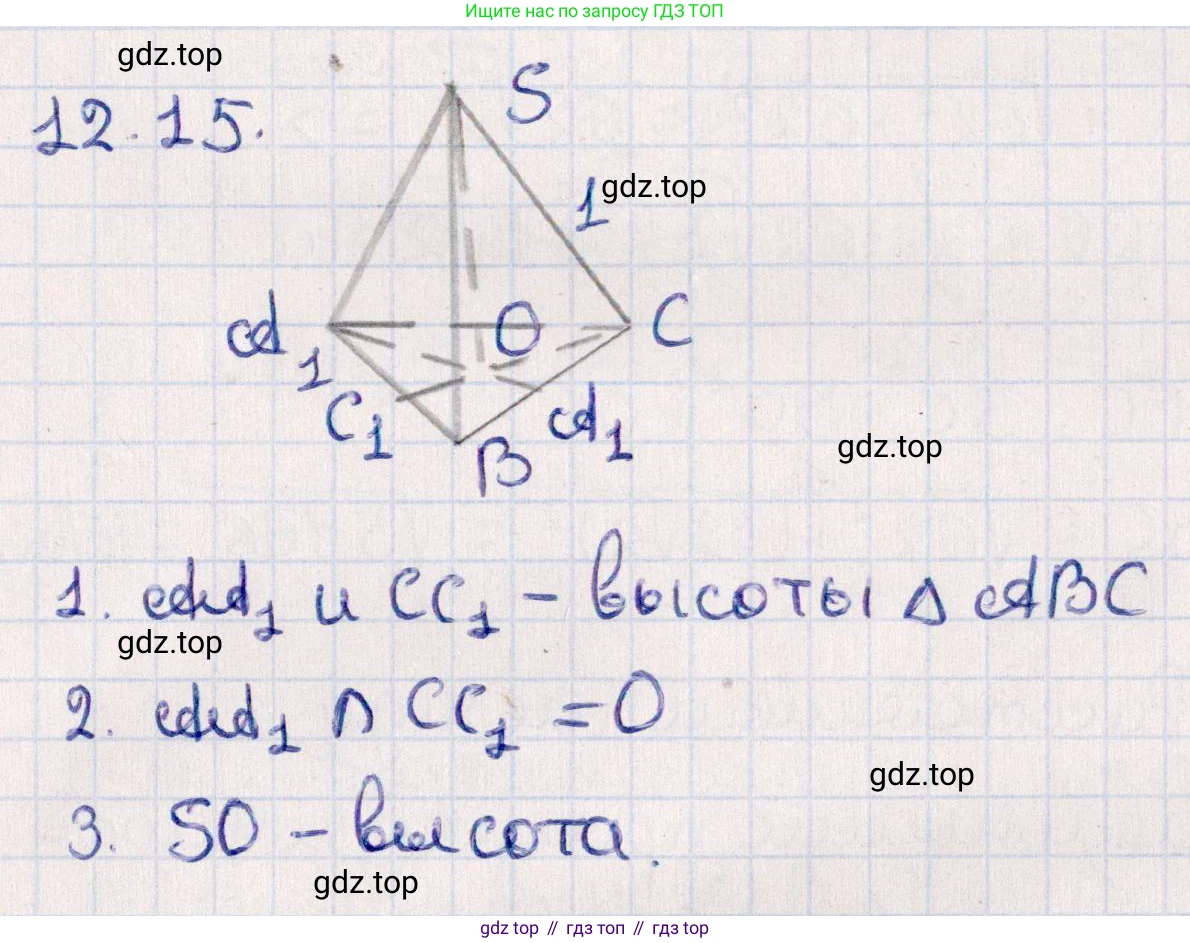 Ищите нас по запросу ГДЗ ТОП
gdz.top
12.15.
S
1
gdz.top
A
1
O
C
C₁
A₁
B
gdz.top
1. AA₁ и CC₁ – высоты Δ ABC
gdz.top
2. AA₁ ∩ CC₁ = O
gdz.top
3. SO – высота.
gdz.top
gdz top // гдз топ // gdz top